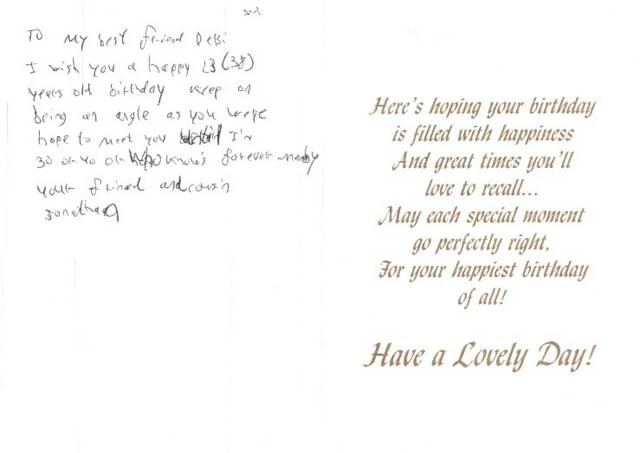 To My best friend Debi
I wish you a happy 23 (38)
years old birthday keep on
being an angle as you were
hope to meet you I'm
30 or 40 or who knows forever
your friend and cousin
Jonathan
Here's hoping your birthday
is filled with happiness
And great times you'll
love to recall...
May each special moment
go perfectly right,
For your happiest birthday
of all!
Have a Lovely Day!